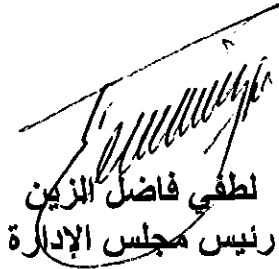 لطفي فاضل الزين
رئيس مجلس الإدارة